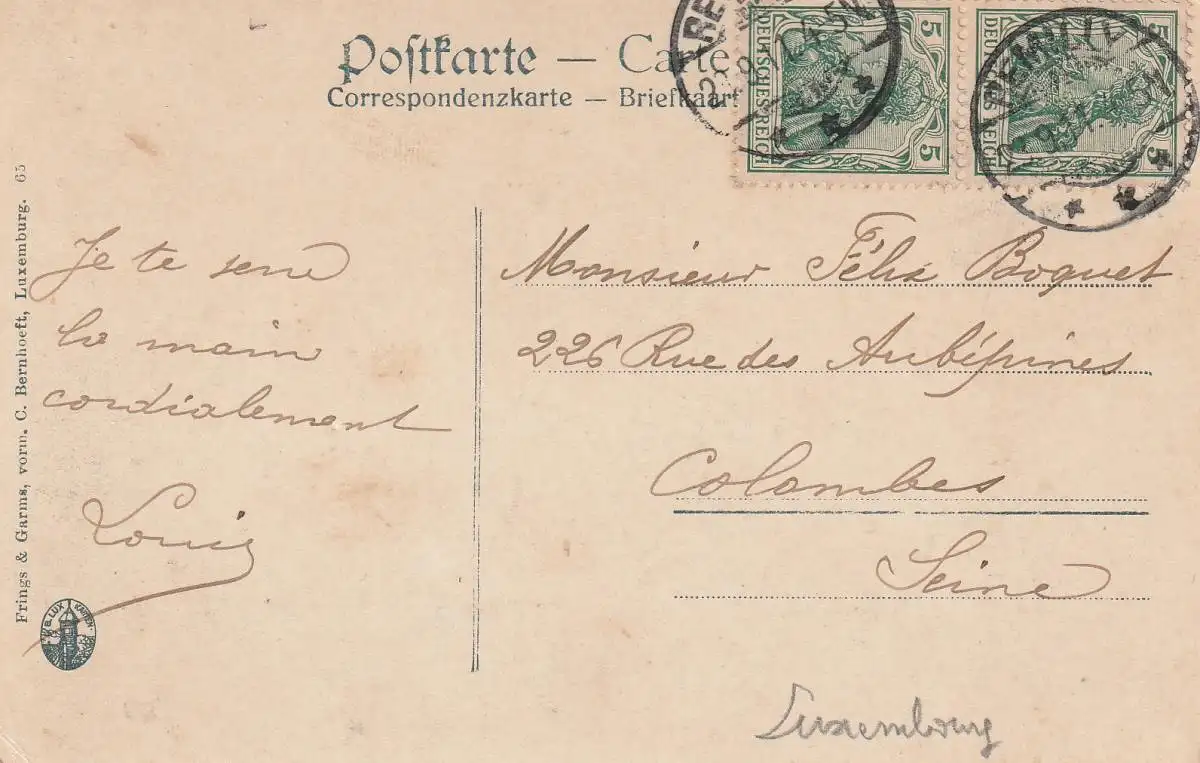 Postkarte — Carte
Correspondenzkarte — Briefkaart
5 5
DEUTSCHES REICH
5 5
DEUTSCHES REICH
REMILLY
Je te serre
la main
cordialement
Louis
Monsieur Félix Boquet
226 Rue des Aubépines
Colombes
Seine
Luxembourg
Frings & Garms, vorm. C. Bernhoeft, Luxemburg. 65